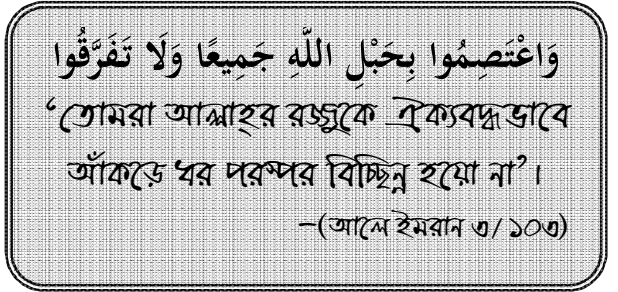 وَاعْتَصِمُوا بِحَبْلِ اللَّهِ جَمِيعًا وَلَا تَفَرَّقُوا
‘তোমরা আল্লাহর রজ্জুকে ঐক্যবদ্ধভাবে
আঁকড়ে ধর পরস্পর বিচ্ছিন্ন হয়ো না’।
–(আলে ইমরান ৩/ ১০৩)